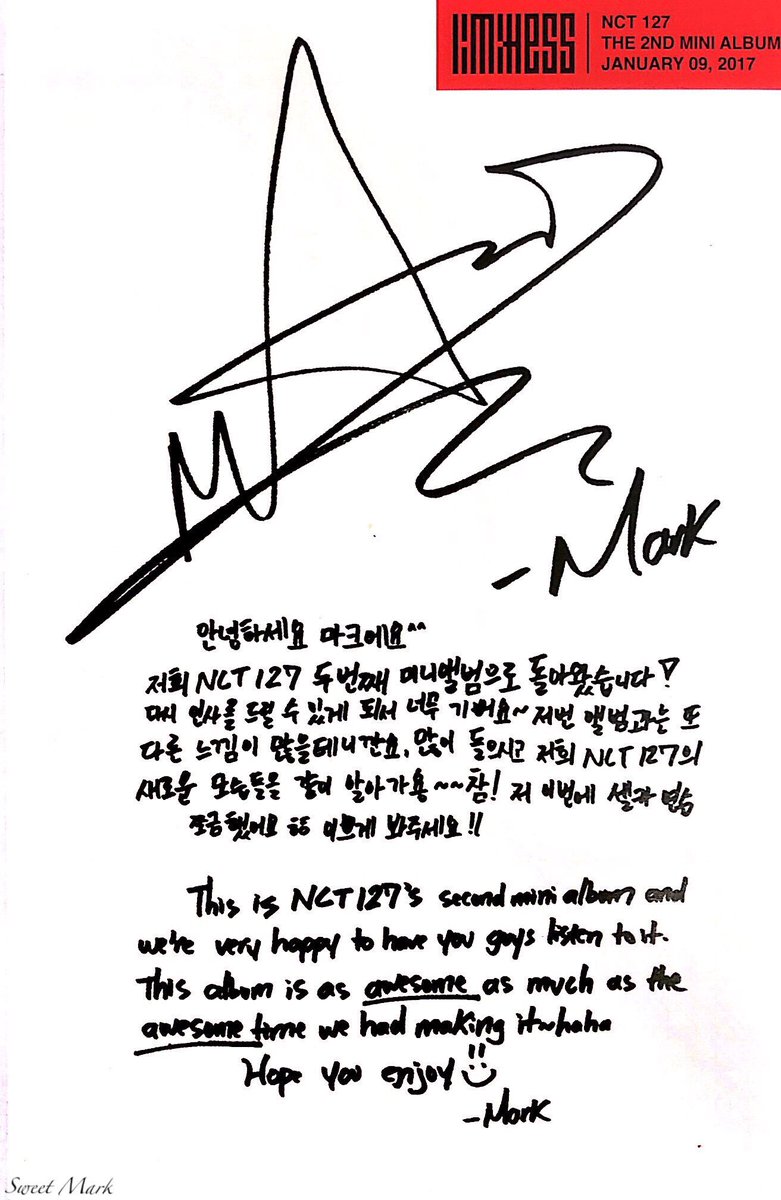 LIMITLESS
NCT 127
THE 2ND MINI ALBUM
JANUARY 09, 2017
-Mark
안녕하세요 마크에요^^
저희 NCT 127 두번째 미니앨범으로 돌아왔습니다!
다시 인사를 드릴 수 있게 되서 너무 기뻐요~ 저번 앨범과는 또
다른 느낌이 많을테니깐요, 많이 들으시고 저희 NCT 127의
새로운 모습들을 같이 알아가용~~참! 저 이번에 셀카 연습
조금했어요 ㅎㅎ 이쁘게 봐주세요!!
This is NCT 127's second mini album and
we're very happy to have you guys listen to it.
This album is as awesome as much as the
awesome time we had making it~haha
Hope you enjoy!!
-Mark
Sweet Mark